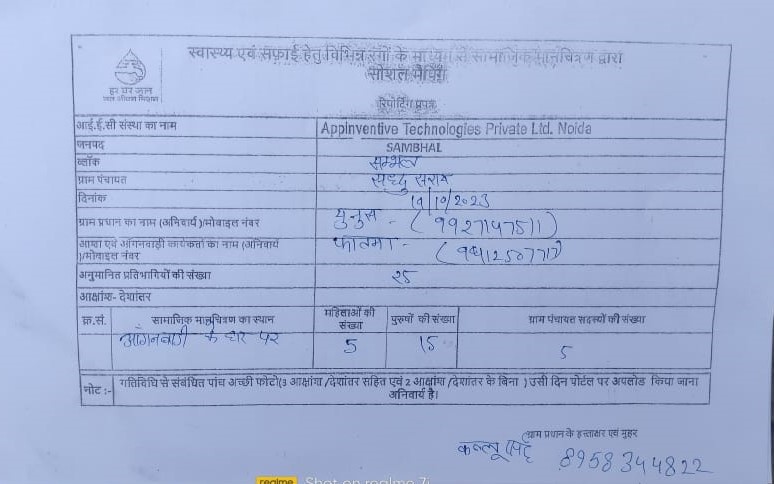 स्वास्थ्य एवं सफ़ाई हेतु विभिन्न रंगों के माध्यम से सामाजिक मानचित्रण द्वारा
सोशल मैपिंग
हर घर जल
जल जीवन मिशन
रिपोर्टिंग प्रपत्र
आई.ई.सी संस्था का नाम Appinventive Technologies Private Ltd. Noida
जनपद SAMBHAL
ब्लॉक सम्भल
ग्राम पंचायत सराय
दिनांक 19/10/2023
ग्राम प्रधान का नाम (अनिवार्य)/मोबाइल नंबर युनुस - (9927147511)
आशा एवं आंगनवाड़ी कार्यकर्ता का नाम (अनिवार्य
)/मोबाइल नंबर फातमा -
अनुमानित प्रतिभागियों की संख्या २५
आक्षांश- देशांतर
क्र.सं. सामाजिक मानचित्रण का स्थान महिलाओं की संख्या पुरुषों की संख्या ग्राम पंचायत सदस्यों की संख्या
आंगनबाडी के घर पर 5 15 5
नोट :- गतिविधि से संबंधित पांच अच्छी फोटो(3 आक्षांश /देशांतर सहित एवं 2 आक्षांश /देशांतर के बिना ) उसी दिन पोर्टल पर अपलोड किया जाना
अनिवार्य है।
ग्राम प्रधान के हस्ताक्षर एवं मुहर
कल्लू सिंह 8958344822
realme Shot on realme 7i